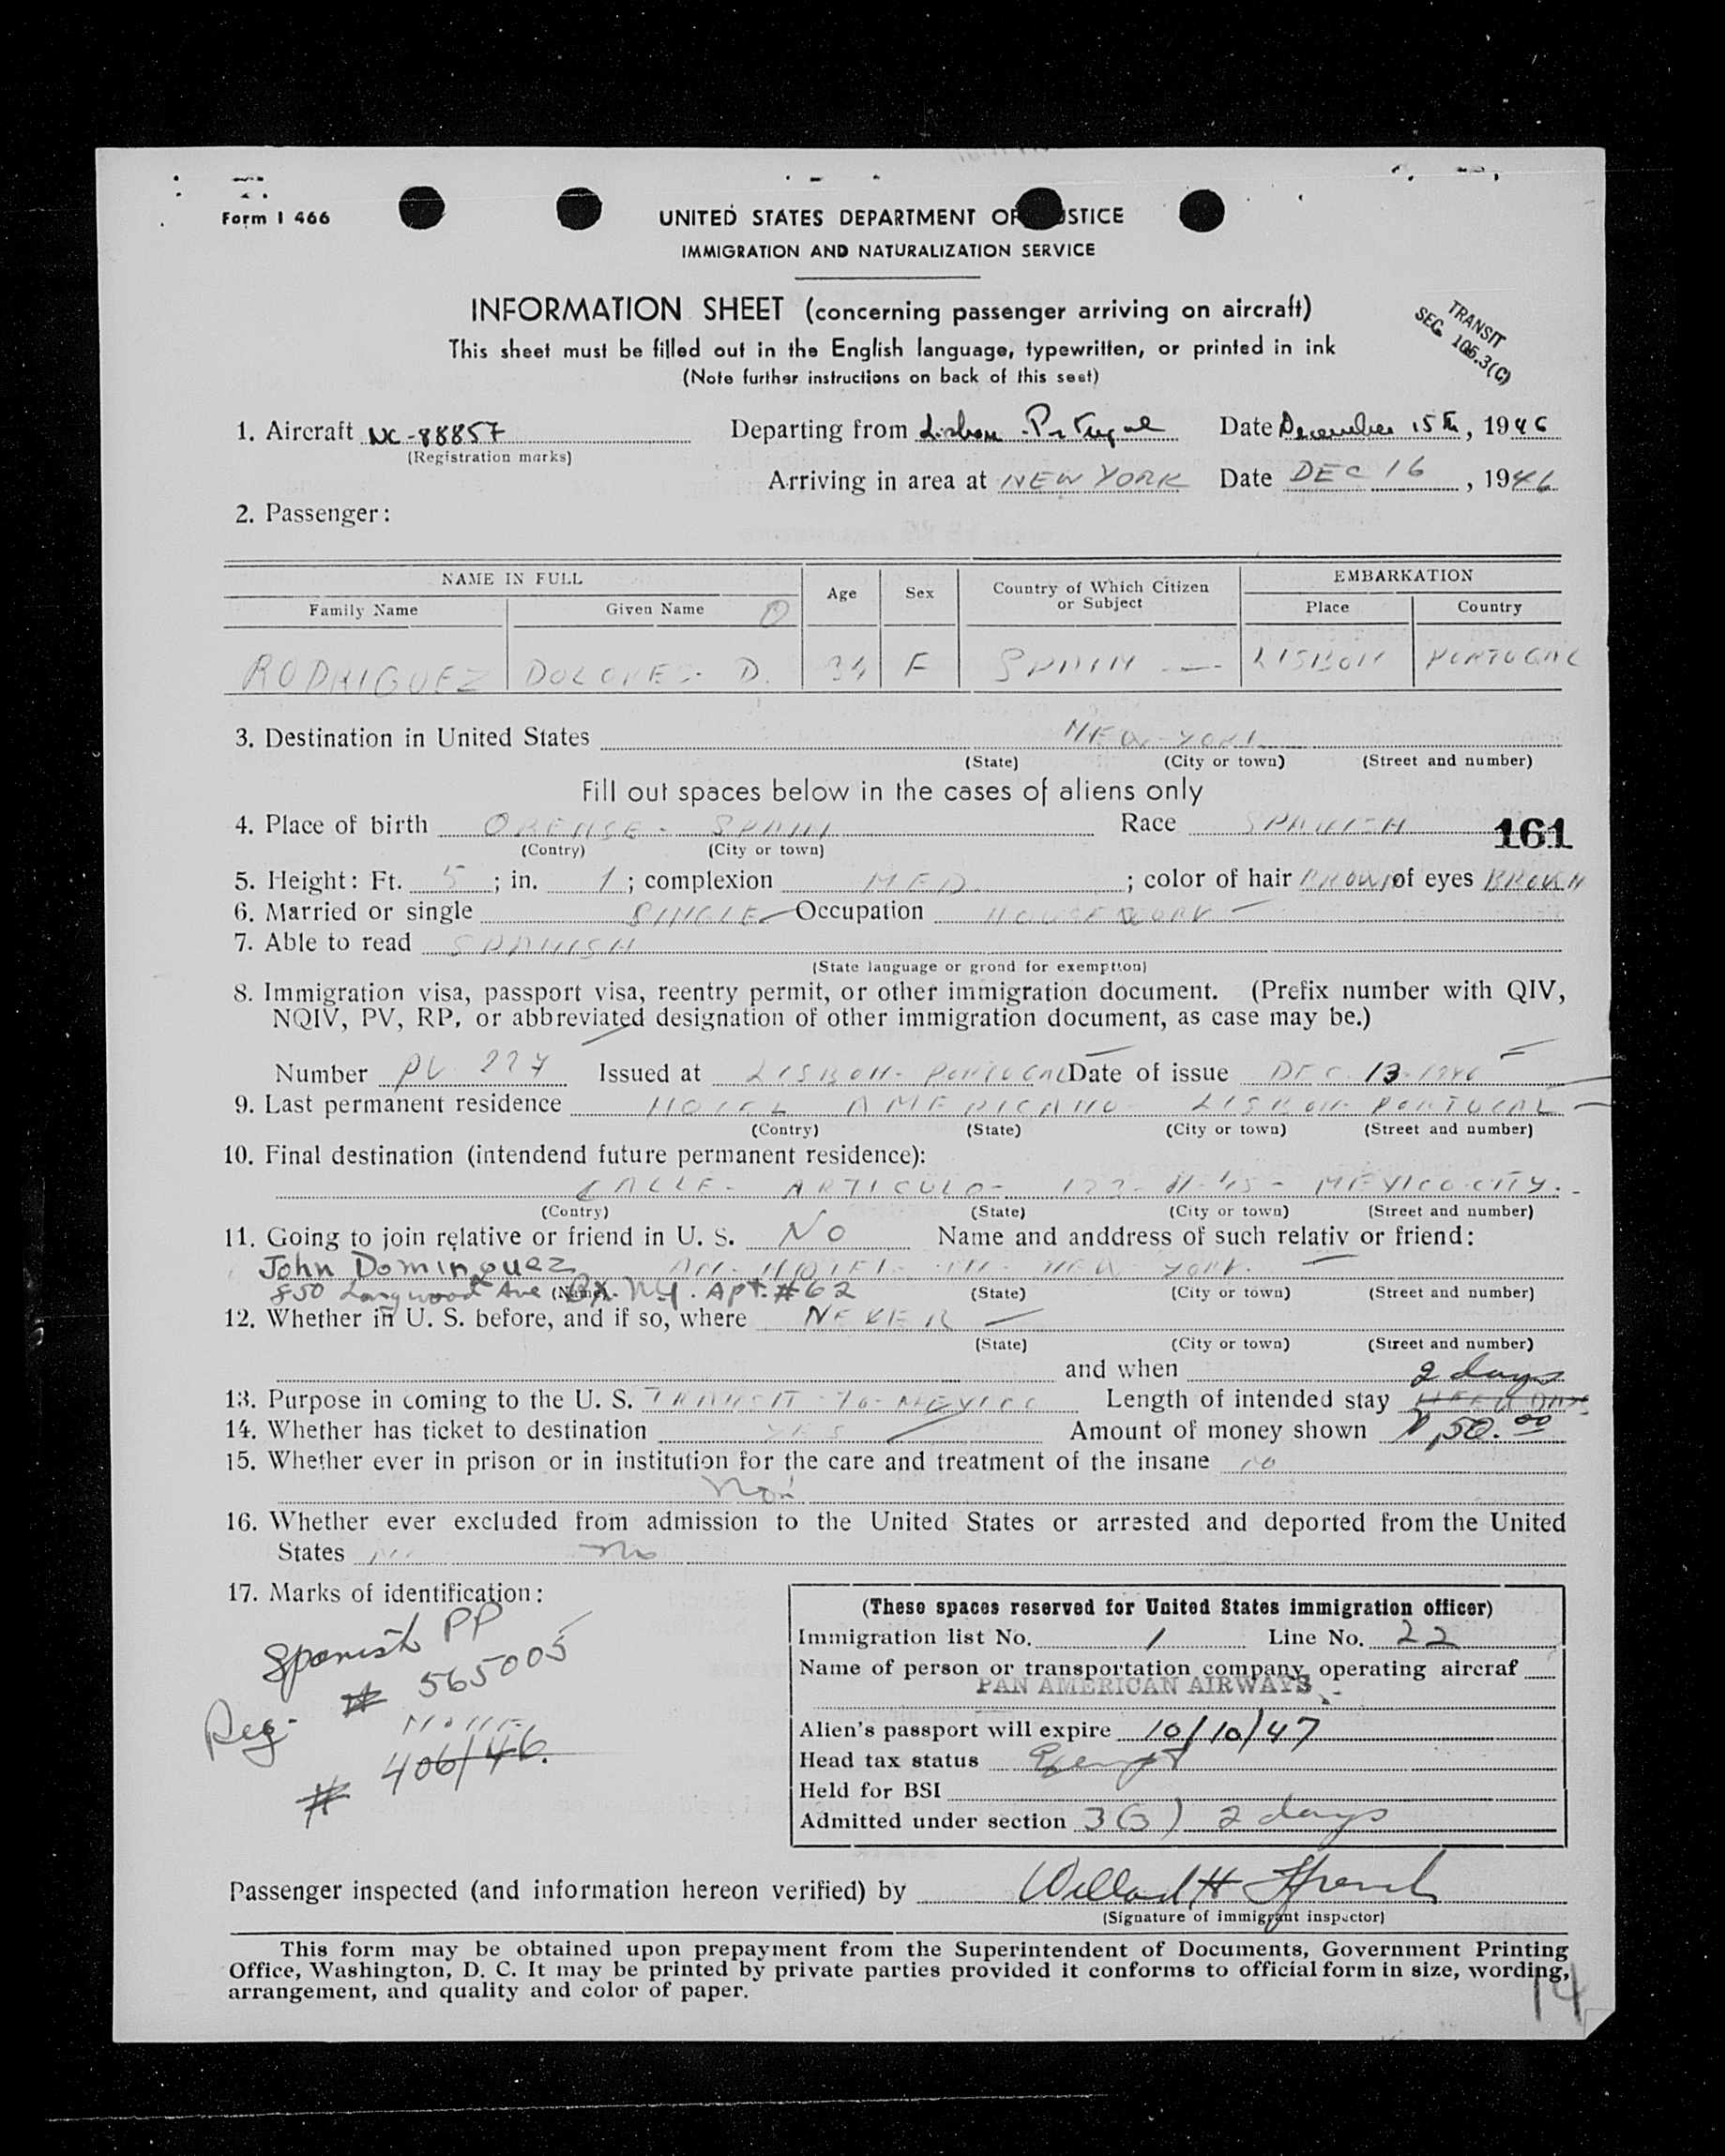 Form I 466
UNITED STATES DEPARTMENT OF JUSTICE
IMMIGRATION AND NATURALIZATION SERVICE
INFORMATION SHEET (concerning passenger arriving on aircraft)
TRANSIT
SEC. 105.3(C)
This sheet must be filled out in the English language, typewritten, or printed in ink
(Note further instructions on back of this seet)
1. Aircraft NC-88857 Departing from Lisbon Portugal Date December 15th, 1946
(Registration marks)
Arriving in area at NEW YORK Date DEC 16, 1946
2. Passenger:
NAME IN FULL Age Sex Country of Which Citizen or Subject EMBARKATION
Family Name Given Name Place Country
RODRIGUEZ DOLORES D. 34 F SPAIN LISBON PORTUGAL
3. Destination in United States NEW YORK
(State) (City or town) (Street and number)
Fill out spaces below in the cases of aliens only
4. Place of birth ORENSE - SPAIN Race SPANISH 161
(Contry) (City or town)
5. Height: Ft. 5; in. 1; complexion MED.; color of hair BROWN of eyes BROWN
6. Married or single SINGLE Occupation HOUSEWORK
7. Able to read SPANISH
(State language or grond for exemption)
8. Immigration visa, passport visa, reentry permit, or other immigration document. (Prefix number with QIV,
NQIV, PV, RP, or abbreviated designation of other immigration document, as case may be.)
Number PV 227 Issued at LISBON - PORTUGAL Date of issue DEC. 13-1946
9. Last permanent residence HOTEL AMERICANO - LISBON PORTUGAL
(Contry) (State) (City or town) (Street and number)
10. Final destination (intendend future permanent residence):
CALLE - ARTICULO - 123 - MEXICO CITY.
(Contry) (State) (City or town) (Street and number)
11. Going to join relative or friend in U. S. NO Name and anddress of such relativ or friend:
John Dominguez HOTEL NEW YORK.
850 Longwood Ave Bx. N.Y. Apt. #62
(Name) (State) (City or town) (Street and number)
12. Whether in U. S. before, and if so, where NEVER
(State) (City or town) (Street and number)
and when
2 days
13. Purpose in coming to the U. S. TRANSIT TO MEXICO Length of intended stay
14. Whether has ticket to destination YES Amount of money shown $50.00
15. Whether ever in prison or in institution for the care and treatment of the insane no
16. Whether ever excluded from admission to the United States or arrested and deported from the United
States no
17. Marks of identification:
Spanish PP
# 565005
NONE
Reg.
# 406/46.
(These spaces reserved for United States immigration officer)
Immigration list No. 1 Line No. 22
Name of person or transportation company operating aircraf
PAN AMERICAN AIRWAYS
Alien's passport will expire 10/10/47
Head tax status Exempt
Held for BSI
Admitted under section 3(3) 2 days
Passenger inspected (and information hereon verified) by Willard H
(Signature of immigrant inspector)
This form may be obtained upon prepayment from the Superintendent of Documents, Government Printing
Office, Washington, D. C. It may be printed by private parties provided it conforms to official form in size, wording,
arrangement, and quality and color of paper.
14